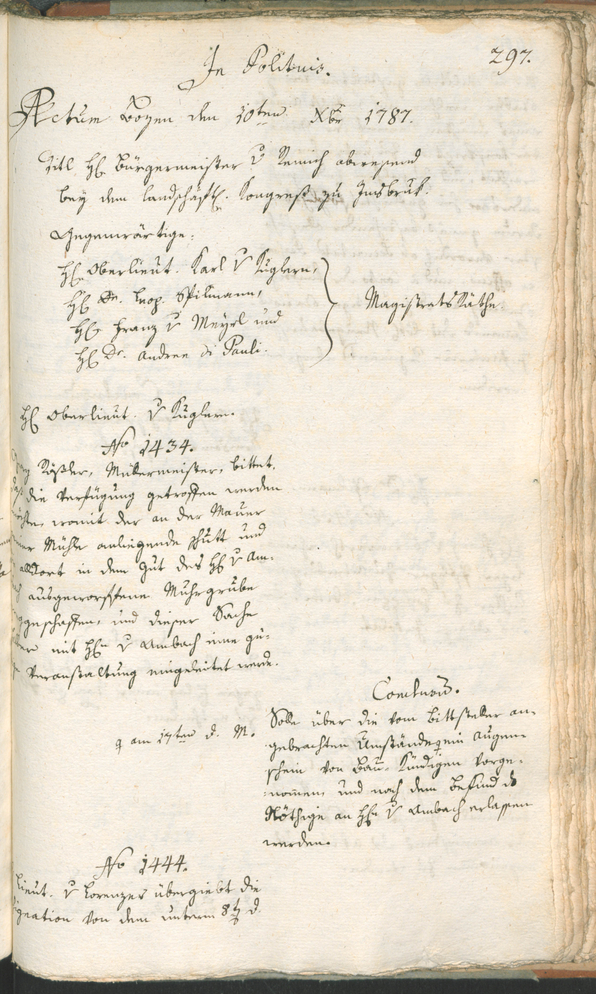 297.
In Politicis.
Actum Bozen den 10ten Xbr 1787.
Titl. H: Bürgermeister v Remich abwesend
bey dem landschäftl. Kongreß zu Insbruk.
Gegenwärtige:
H: Oberlieut. Karl v Kuglern,
H: Dr. Leop. Spilmann,
H: Franz v Meyrl und
H: Dr. Andree di Pauli.
Magistrats Räthe.
H: Oberlieut. v Kuglern.
No 1434.
Rößler, Müllermeister, bittet,
die Verfügung getroffen werden
womit der an der Mauer
Mühle anliegende Schutt und
alldort in dem Gut des H: v Am-
ausgeworffene Muhrgrube
geschaffen, und dieser Sache
mit H:n v Ambach eine gü-
Veranstaltung eingeleitet werde.
Conclusum.
Solle über die vom Bittsteller an-
gebrachten Umstände ein Augen-
schein von Bau-Kündigen vorge-
nomen, und nach dem Befund das
Nöthige an H:n v Ambach erlassen
werden.
am 17ten d. M.
No 1444.
Lieut. v Lorenzer übergiebt die
von dem unterm 8t d.